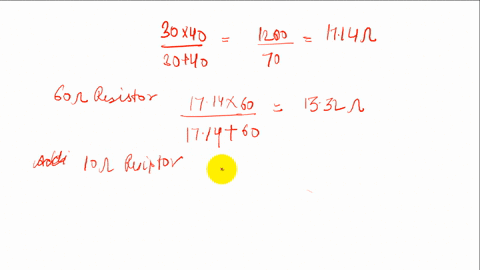 30×40 / 30+40 = 1200 / 70 = 17.14Ω
60Ω Resistor 17.14×60 / 17.14+60 = 13.32Ω
Add 10Ω Resistor